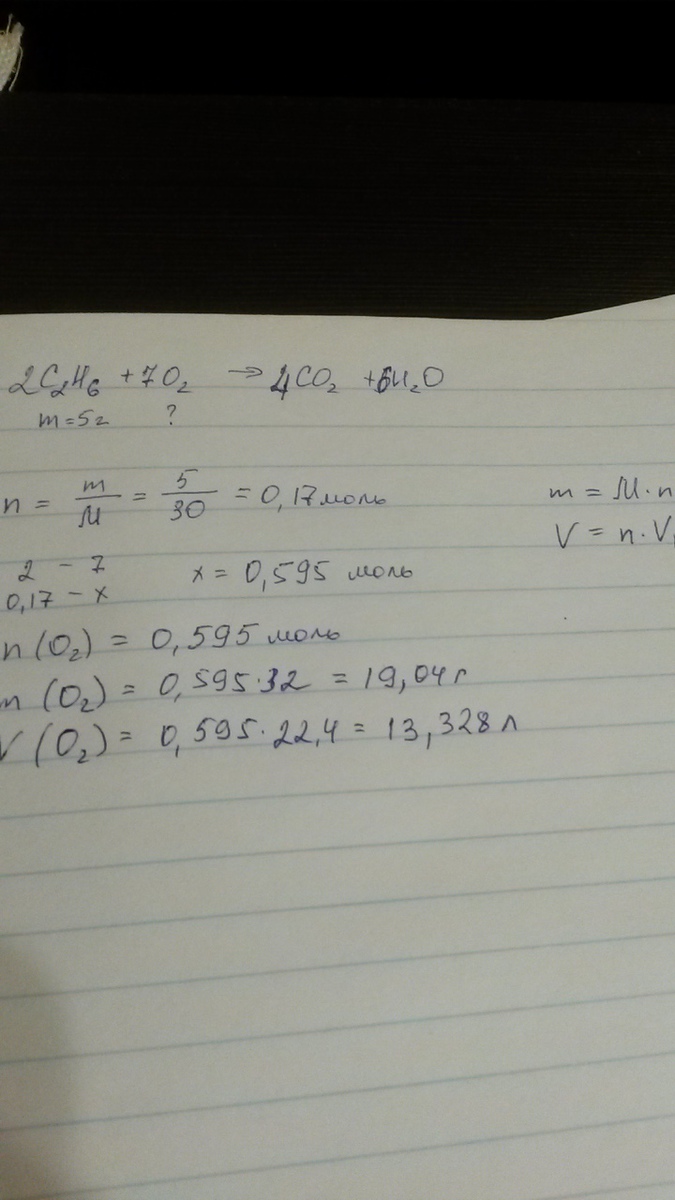 2C₂H₆ + 7O₂ → 4CO₂ + 6H₂O
m=5г ?
n = m/M = 5/30 = 0,17 моль
m = M·n
V = n·V
2 – 7
x = 0,595 моль
0,17 – x
n (O₂) = 0,595 моль
m (O₂) = 0,595·32 = 19,04 г
V (O₂) = 0,595·22,4 = 13,328 л